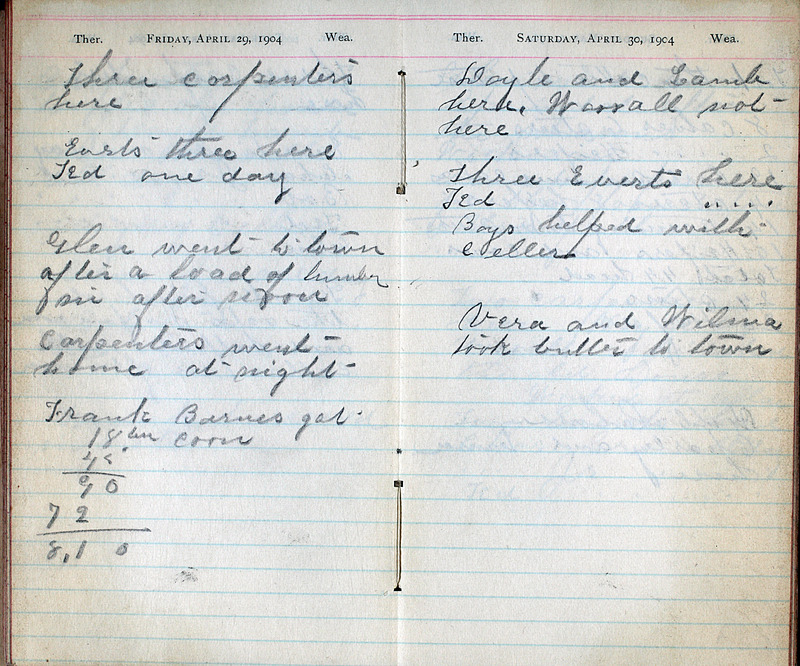 Ther. FRIDAY, APRIL 29, 1904 Wea.
Three carpenters
here
Evarts three here
Ted one day
Glen went to town
after a load of lumber
for after noon
Carpenters went
home at night
Frank Barnes got
18 bu corn
45
90
72
8,10
Ther. SATURDAY, APRIL 30, 1904 Wea.
Doyle and Lamb
here, Worrall not
here
Three Everts here
Ted " " " "
Boys helped with
celler
Vera and Wilma
took butter to town